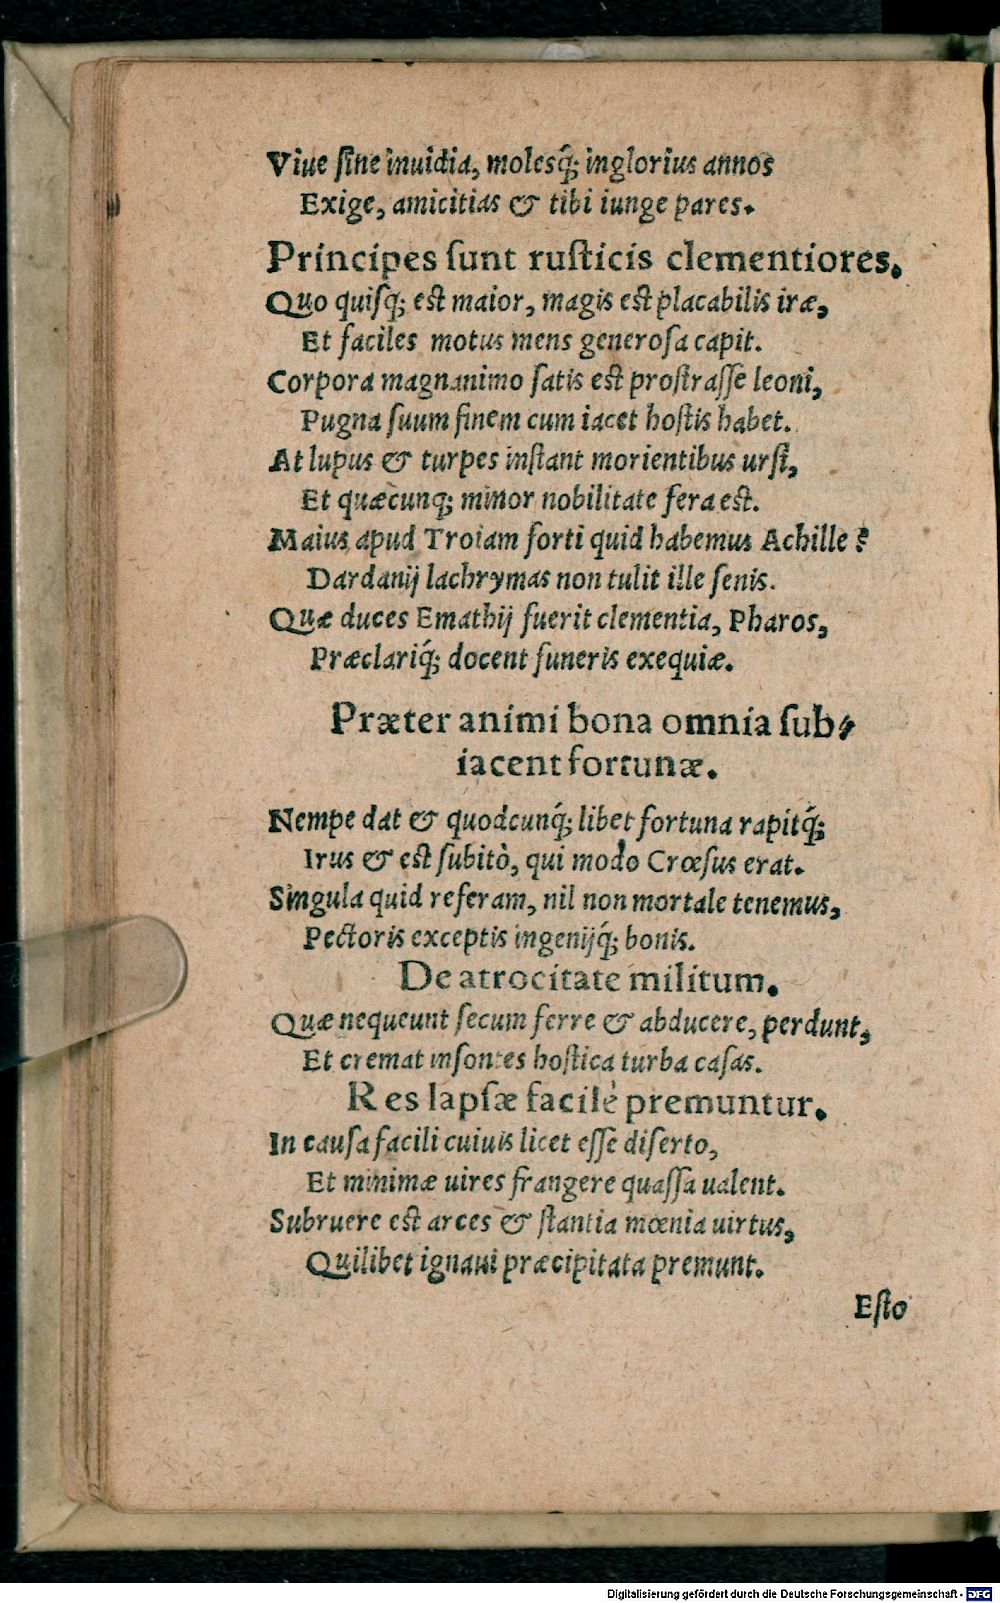 Viue ſine inuidia, molesq́; inglorius annos
Exige, amicitias & tibi iunge pares.
Principes ſunt ruſticis clementiores.
Quo quiſq; est maior, magis est placabilis iræ,
Et faciles motus mens generoſa capit.
Corpora magnanimo ſatis est proſtraſſe leoni,
Pugna ſuum finem cum iacet hoſtis habet.
At lupus & turpes inſtant morientibus urſi,
Et quæcunq; minor nobilitate fera est.
Maius apud Troiam forti quid habemus Achille?
Dardanij lachrymas non tulit ille ſenis.
Quæ duces Emathij fuerit clementia, Pharos,
Præclariq́; docent funeris exequiæ.
Præter animi bona omnia ſub⸗
iacent fortunæ.
Nempe dat & quodcunq́; libet fortuna rapitq́;
Irus & est ſubitò, qui modo Crœſus erat.
Singula quid referam, nil non mortale tenemus,
Pectoris exceptis ingenijq́; bonis.
De atrocitate militum.
Quæ nequeunt ſecum ferre & abducere, perdunt,
Et cremat inſontes hoſtica turba caſas.
Res lapſæ facilè premuntur.
In cauſa facili cuiuis licet eſſe diſerto,
Et minimæ uires frangere quaſſa ualent.
Subruere est arces & ſtantia mœnia uirtus,
Quilibet ignaui præcipitata premunt.
Eſto
Digitalisierung gefördert durch die Deutsche Forschungsgemeinschaft - DFG